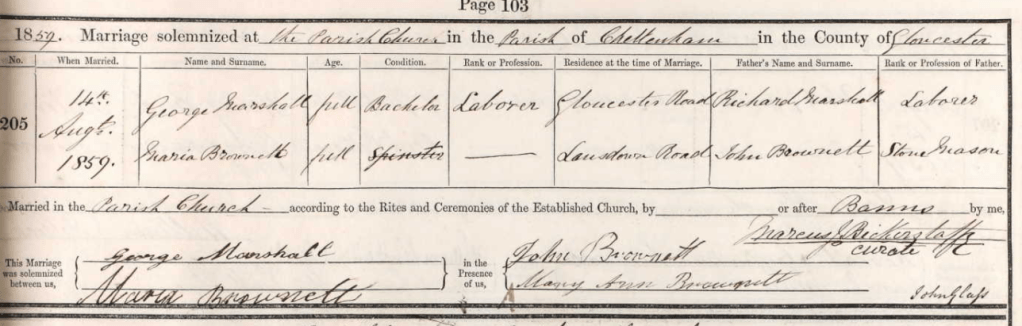 Page 103
1859. Marriage solemnized at the Parish Church in the Parish of Cheltenham in the County of Gloucester
No. When Married. Name and Surname. Age. Condition. Rank or Profession. Residence at the time of Marriage. Father's Name and Surname. Rank or Profession of Father.
205 14th Augt. 1859. George Marshall full Bachelor Laborer Gloucester Road Richard Marshall Laborer
Maria Brownett full Spinster — Lansdown Road John Brownett Stone Mason
Married in the Parish Church — according to the Rites and Ceremonies of the Established Church, by or after Banns by me,
Marcus J Bickerstaff
curate
This Marriage was solemnized between us, George Marshall in the Presence of us, John Brownett
Maria Brownett Mary Ann Brownett
John Glass